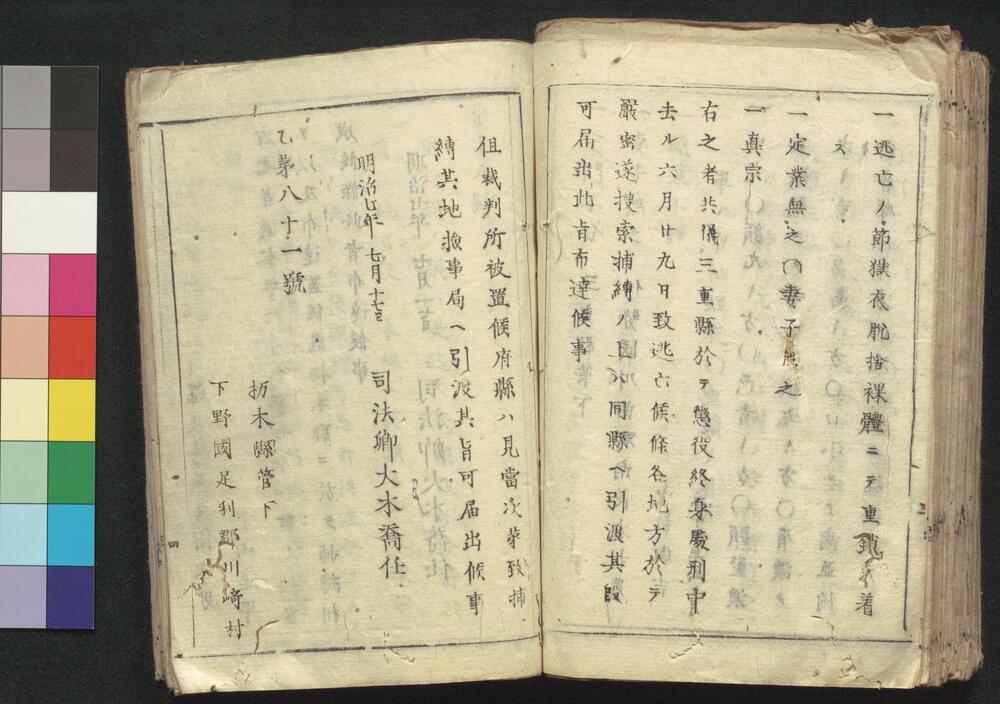 一逃亡ノ節獄衣脱捨裸體ニテ重鎖ヲ着
ス
一定業無之〇妻子無之
一真宗
右之者共儀三重縣於テ懲役終身處刑中
去ル六月廿九日致逃亡候條各地方於テ
嚴密遂搜索捕縛ノ上ハ同縣ヘ引渡其段
可届出此旨布達候事
但裁判所被置候府縣ハ見當次第致捕
縛其地撿事局ヘ引渡其旨可届出候事
明治七年七月十七日
司法卿大木喬任
乙第八十一號
栃木縣管下
下野國足利郡川﨑村
四